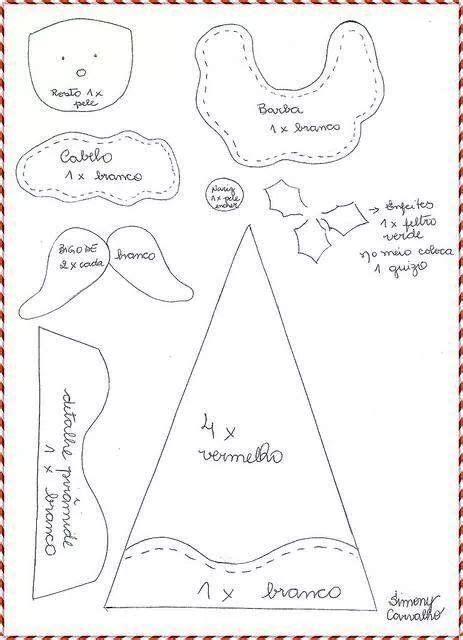 Rosto 1x
pele
Barba
1x branco
Cabelo
1x branco
Nariz
1x pele
encher
Enfeites
1x feltro
verde
no meio coloca
1 guizo
BIGODE
2x cada
branco
detalhe pirâmide
1x branco
4x
vermelho
1x branco
Simony
Carvalho